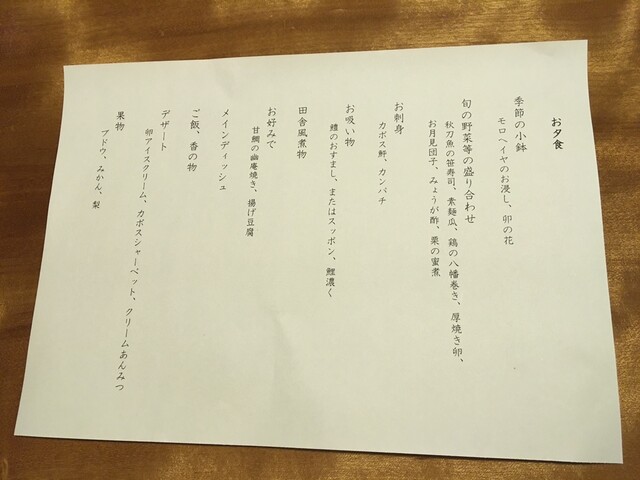 お夕食
季節の小鉢
モロヘイヤのお浸し、卯の花
旬の野菜等の盛り合わせ
秋刀魚の笹寿司、素麺瓜、鶏の八幡巻き、厚焼き卵、
お月見団子、みょうが酢、栗の蜜煮
お刺身
カボス鮃、カンパチ
お吸い物
鱧のおすまし、またはスッポン、鯉濃く
田舎風煮物
お好みで
甘鯛の幽庵焼き、揚げ豆腐
メインディッシュ
ご飯、香の物
デザート
卵アイスクリーム、カボスシャーベット、クリームあんみつ
果物
ブドウ、みかん、梨